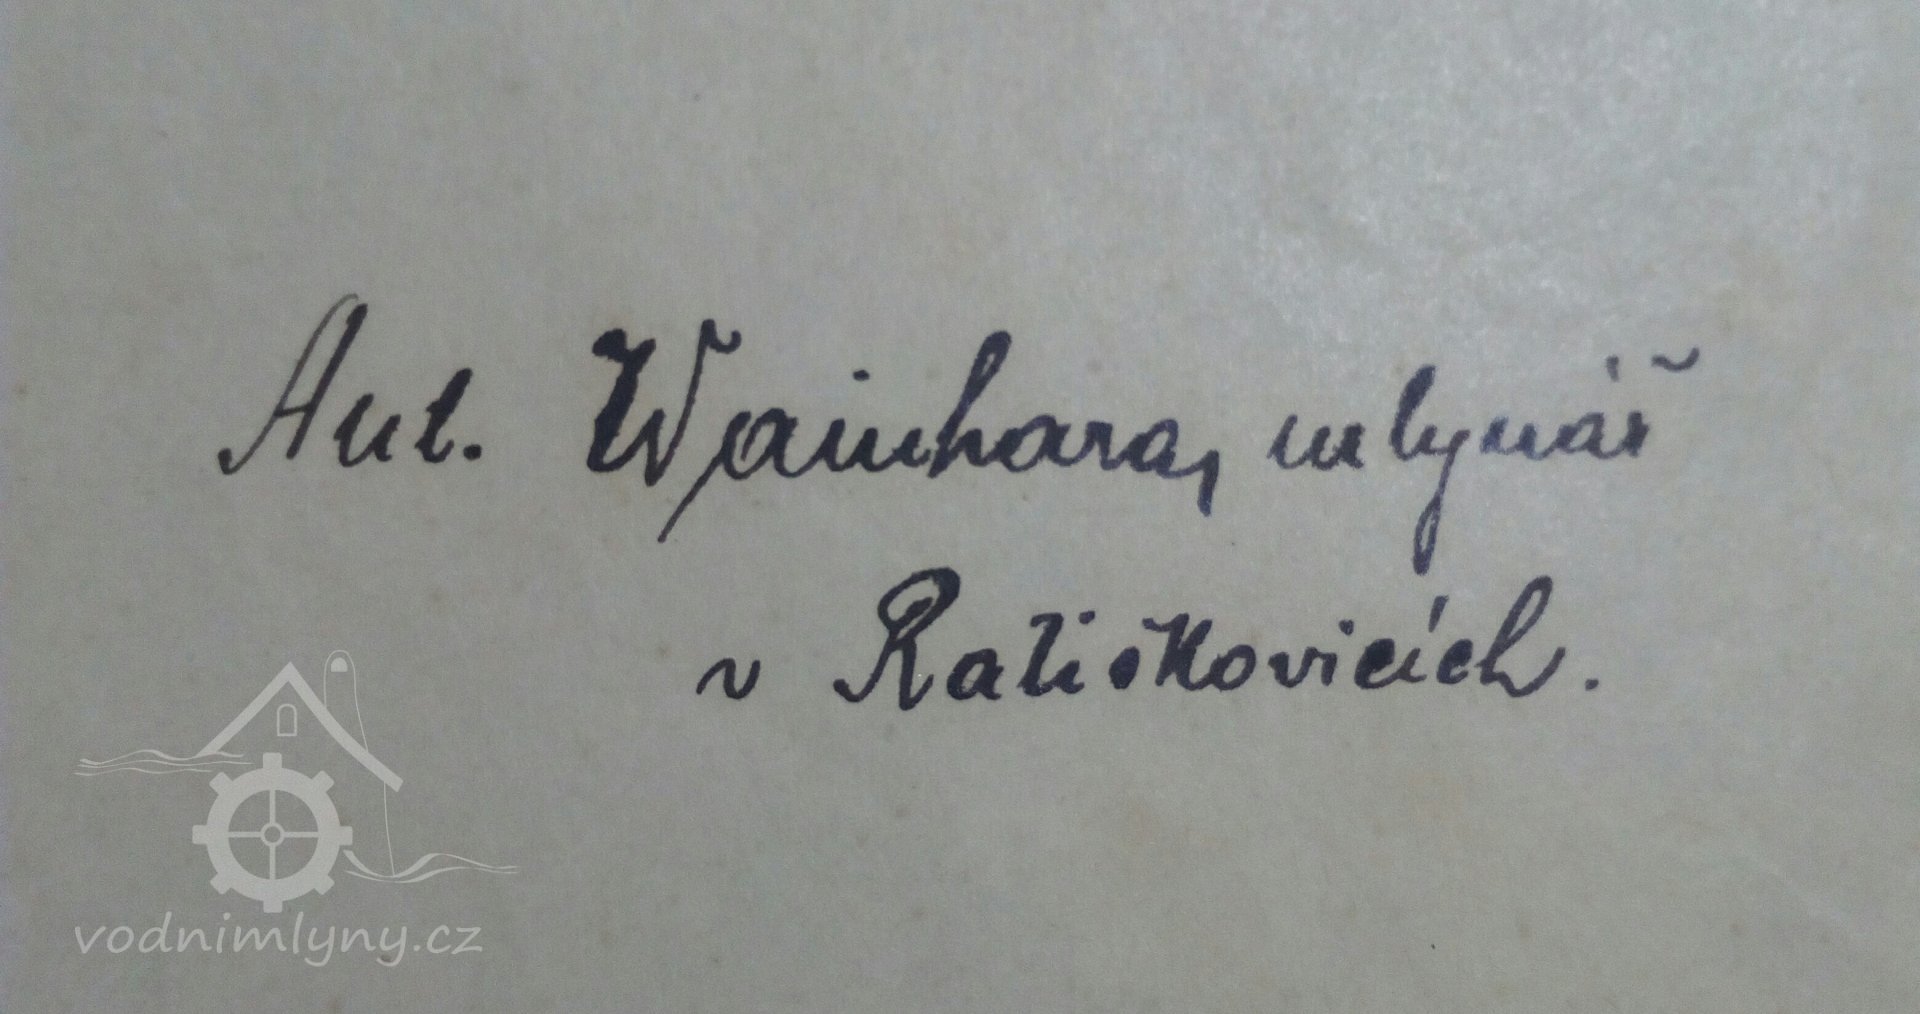 Ant. Wainhara, mlynář
v Ratiškovicích.
vodnimlyny.cz